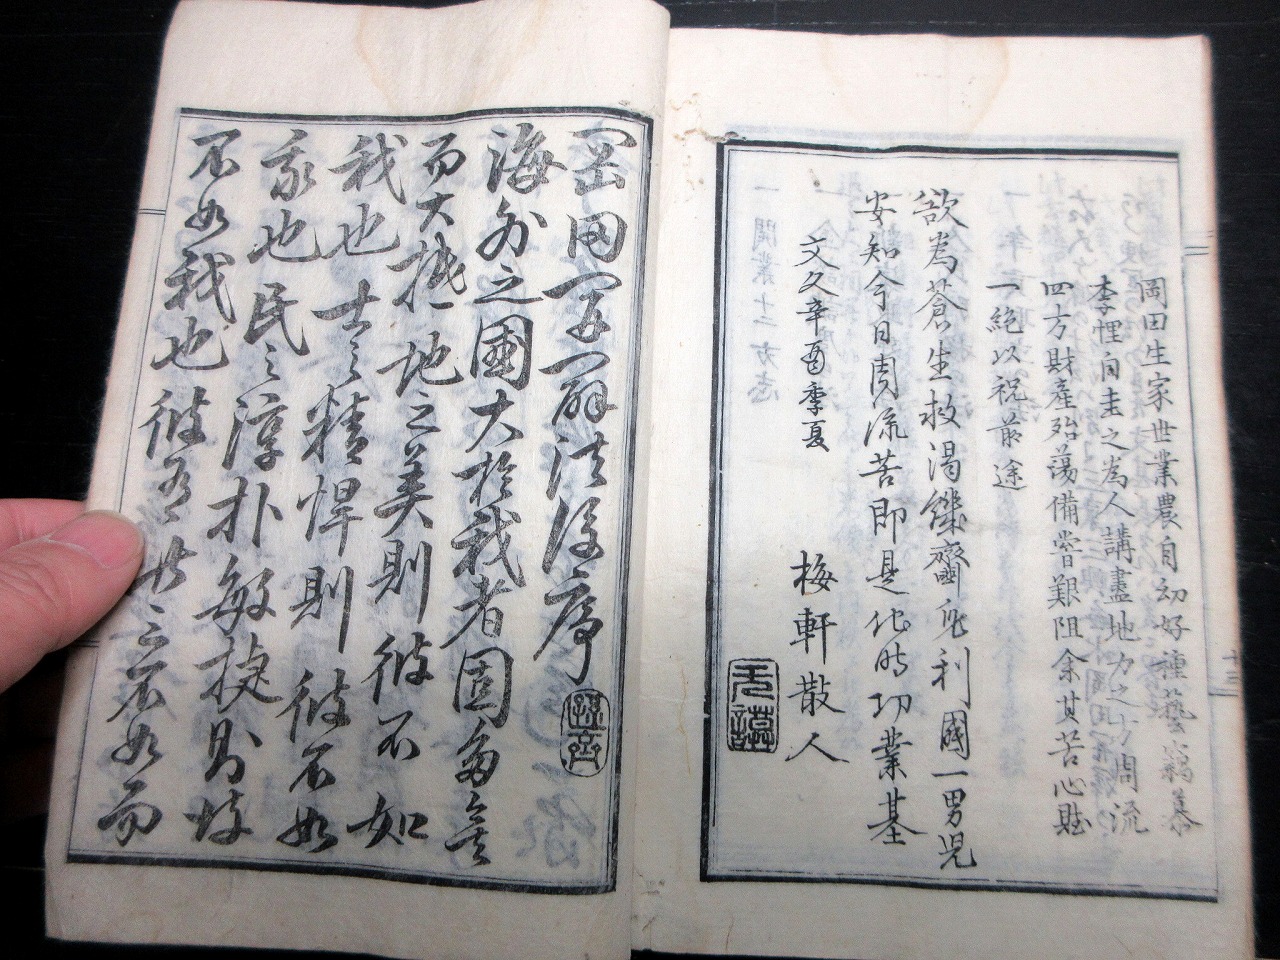 岡田生家世業農自幼好種藝竊慕
李悝白圭之為人講盡地力之方周流
四方財產殆蕩備嘗艱阻余其苦心賦
一絕以祝前途
欲為蒼生救渴饑齋成利國一男児
安知今日周流苦即是他時功業基
文久辛酉季夏
梅軒散人
岡田開闢法後序
海外之國大於我者固多矣
而大抵地之美則彼不如
我也士之精悍則彼不如
我也民之淳朴敏捷則彼
不如我也彼有此之不如而